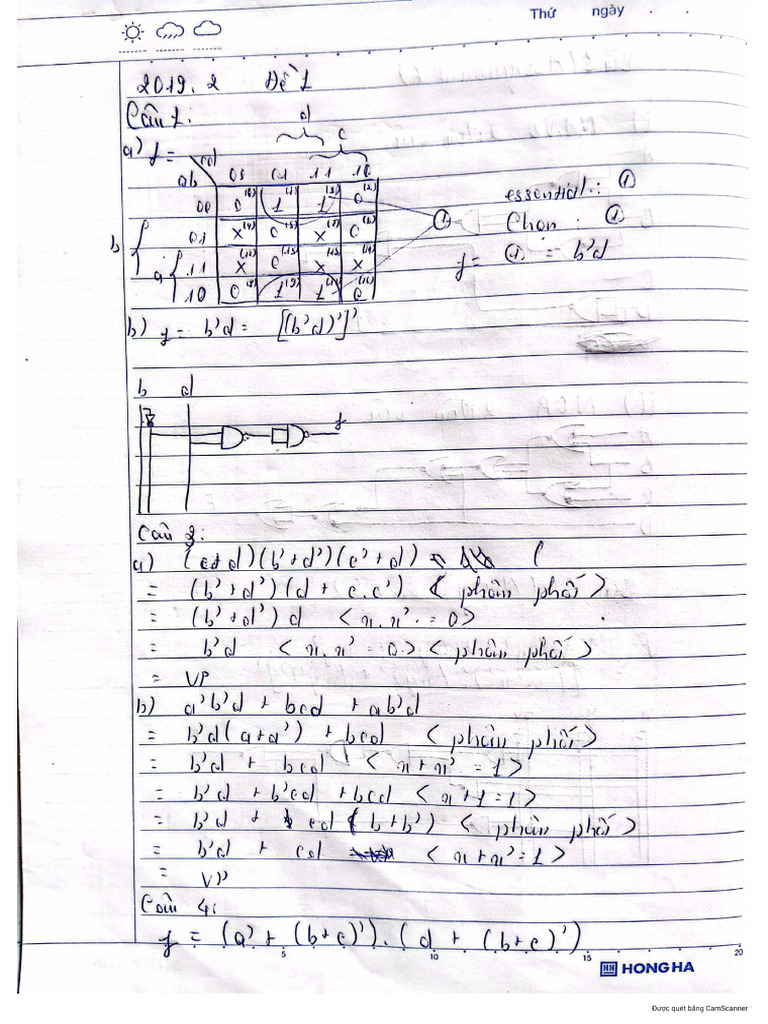 Thứ ngày
2019.2 Đề 1
Câu 1:
d
c
a) f =
cd
ab 00 01 11 10
00 0(0) 1(1) 1(3) 0(2)
b 01 X(4) 0(5) X(7) 0(6)
a 11 X(12) 0(13) X(15) X(14)
10 0(8) 1(9) 1(11) 0(10)
①
essential: ①
Chọn: ①
f = ① = b'd
b) f = b'd = [(b'd)']'
b d
f
Câu 3:
a) (c+d)(b'+d')(c'+d) =
= (b'+d')(d+c.c') <phân phối>
= (b'+d')d <x.x' = 0>
= b'd <x.x' = 0> <phân phối>
= VP
b) a'b'd + bcd + ab'd
= b'd(a+a') + bcd <phân phối>
= b'd + bcd <x+x' = 1>
= b'd + b'cd + bcd <x+1=1>
= b'd + cd(b+b') <phân phối>
= b'd + cd <x+x'=1>
= VP
Câu 4:
f = (a' + (b+c)').(d + (b+c)')
5 10 15 20
HH HONG HA
Được quét bằng CamScanner